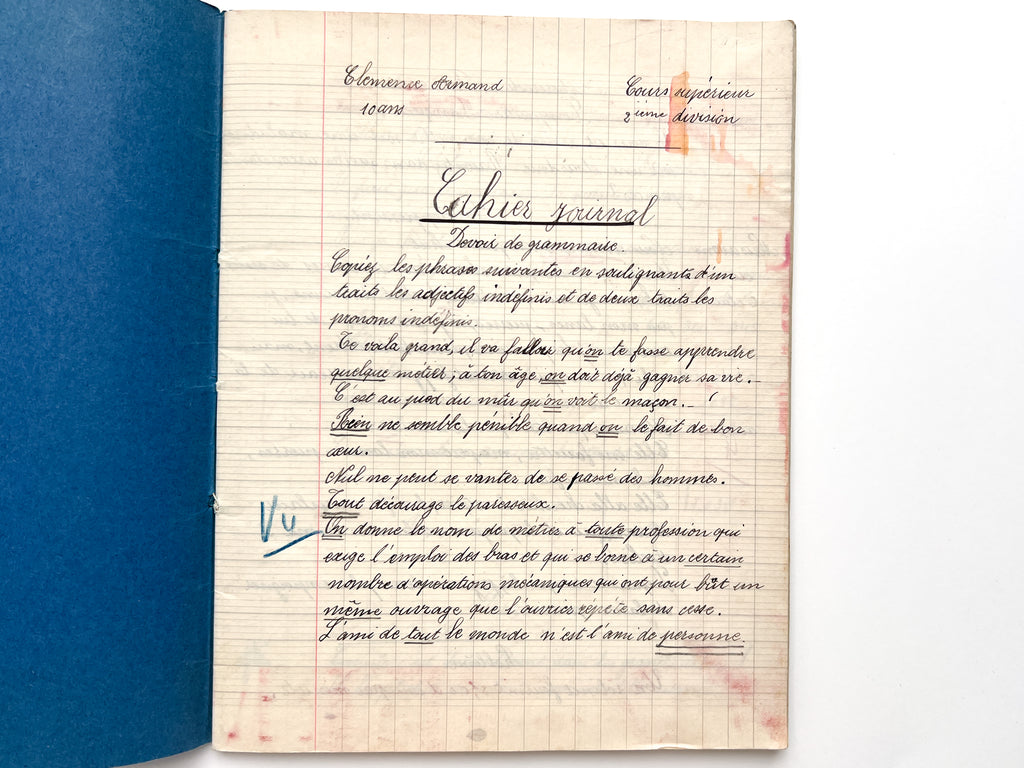 Clemence Armand
Cours supérieur
10 ans
2ième division
Cahier journal
Devoir de grammaire.
Copiez les phrases suivantes en soulignants d'un
traits les adjectifs indéfinis et de deux traits les
pronoms indéfinis.
Te voila grand, il va falloir qu'on te fasse apprendre
quelque métier ; à ton âge, on doit déjà gagner sa vie. _
C'est au pied du mûr qu'on voit le maçon. _
Rien ne semble pénible quand on le fait de bon
cœur.
Nul ne peut se vanter de se passé des hommes.
Tout décourage le paresseux.
Vu
On donne le nom de métier à toute profession qui
exige l'emploi des bras et qui se borne à un certain
nombre d'opérations mécaniques qui ont pour bût un
même ouvrage que l'ouvrier répète sans cesse.
L'ami de tout le monde n'est l'ami de personne.